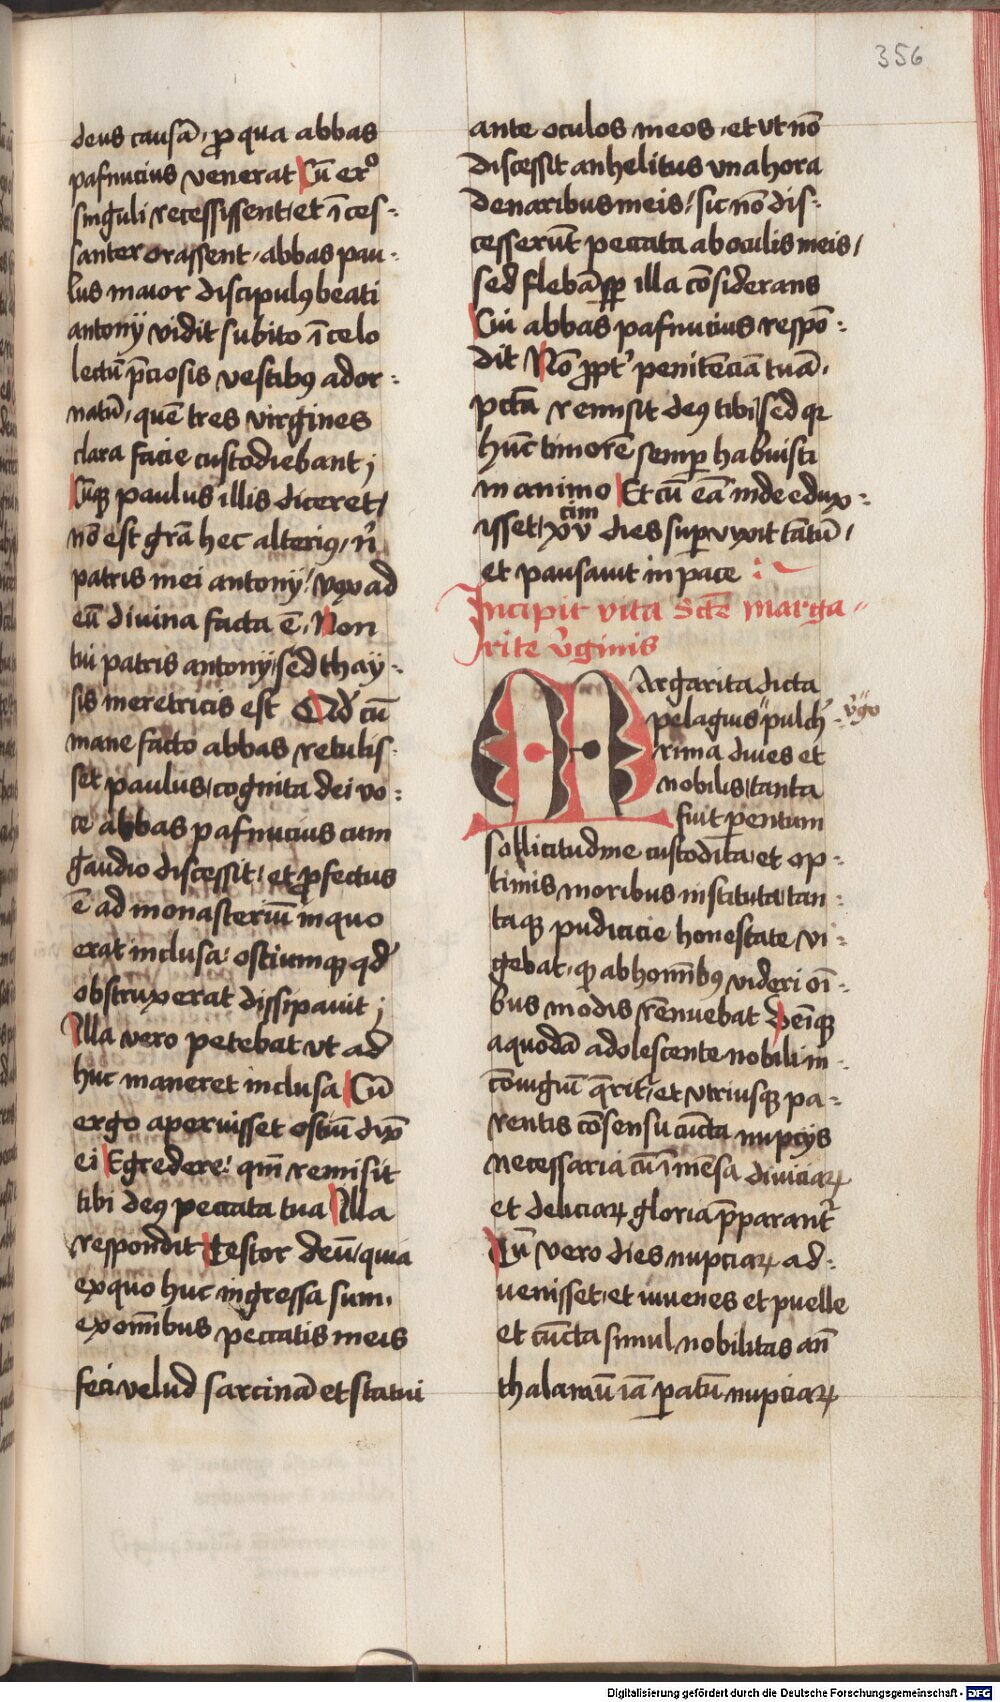 356
deus causā, ꝓ qua abbas
pafnucius venerat Cū erͦ
singuli recessissent, et ī ces-
santer orassent, abbas pau-
lus maior discipulꝰ beati
antonij vidit subito ī celo
lectū p̄ciosis vestibꝰ ador-
natū, quē tres virgines
clara facie custodiebant;
Cūqꝫ paulus illis diceret,
nō est grā hec alteriꝰ, nͥ
patris mei antonij, vox ad
eū divina facta ē, Non
tui patris antonij, sed thay-
sis meretricis est Qd̓ cū
mane facto abbas retulis-
set paulus, cognita dei vo-
ce abbas pafnucius cum
gaudio discessit, et ꝓfectus
ē ad monasteriū in quo
erat inclusa, ostiumqꝫ qd̓
obstruxerat dissipauit;
Illa vero petebat ut ad
huc maneret inclusa Cū
ergo aperuisset ostiū dix̄
ei Egredere, qm̄ remisit
tibi deꝰ peccata tua Illa
respondit Testor deū, quia
ex quo huc ingressa sum,
ex om̄ibus peccatis meis
feci velud sarcinā et statui
ante oculos meos, et ut nō
discessit anhelitus una hora
de naribus meis, sic nō dis-
cesserūt peccata ab oculis meis,
sed flebā sꝑ illa cōsiderans
Cui abbas pafnucius respō-
dit Nō ꝓpt̓ penitēciā tuā,
pctā remisit deꝰ tibi, sed qꝛ
hūc timorē semꝑ habuisti
in animo Et cū eā inde edux-
isset, xv cim dies suꝑvixit tātū,
et pausauit in pace
Incipit vita Scē Marga-
rite v̓ginis
Margarita dicta
pelagius pulch- v̓go
rima dives et
nobilis, tanta
fuit ꝑentum
sollicitudine custodita, et op-
timis moribus instituta, tan-
taqꝫ pudicicie honestate vi-
gebat, ꝙ ab hom̄ibꝰ videri oī-
bus modis rēnuebat Deīqꝫ
a quodā adolescente nobili in
cōiugiū q̄rit̓, et utriusqꝫ pa-
rentis cōsensu cūcta nupcijs
necessaria cū īmēsa diviciaꝝ
et deliciaꝝ gloria p̄parant̓
Cū vero dies nupciaꝝ ad-
venisset, et iuvenes et puelle
et cūcta simul nobilitas an̄
thalamū iā ꝑatū nupciaꝝ
Digitalisierung gefördert durch die Deutsche Forschungsgemeinschaft - DFG